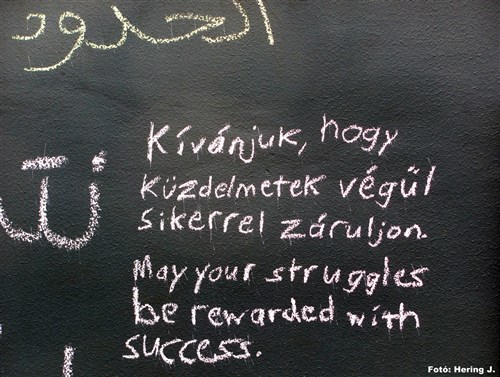 الحدود
Kívánjuk, hogy
küzdelmetek végül
sikerrel záruljon.
May your struggles
be rewarded with
success.
Fotó: Hering J.